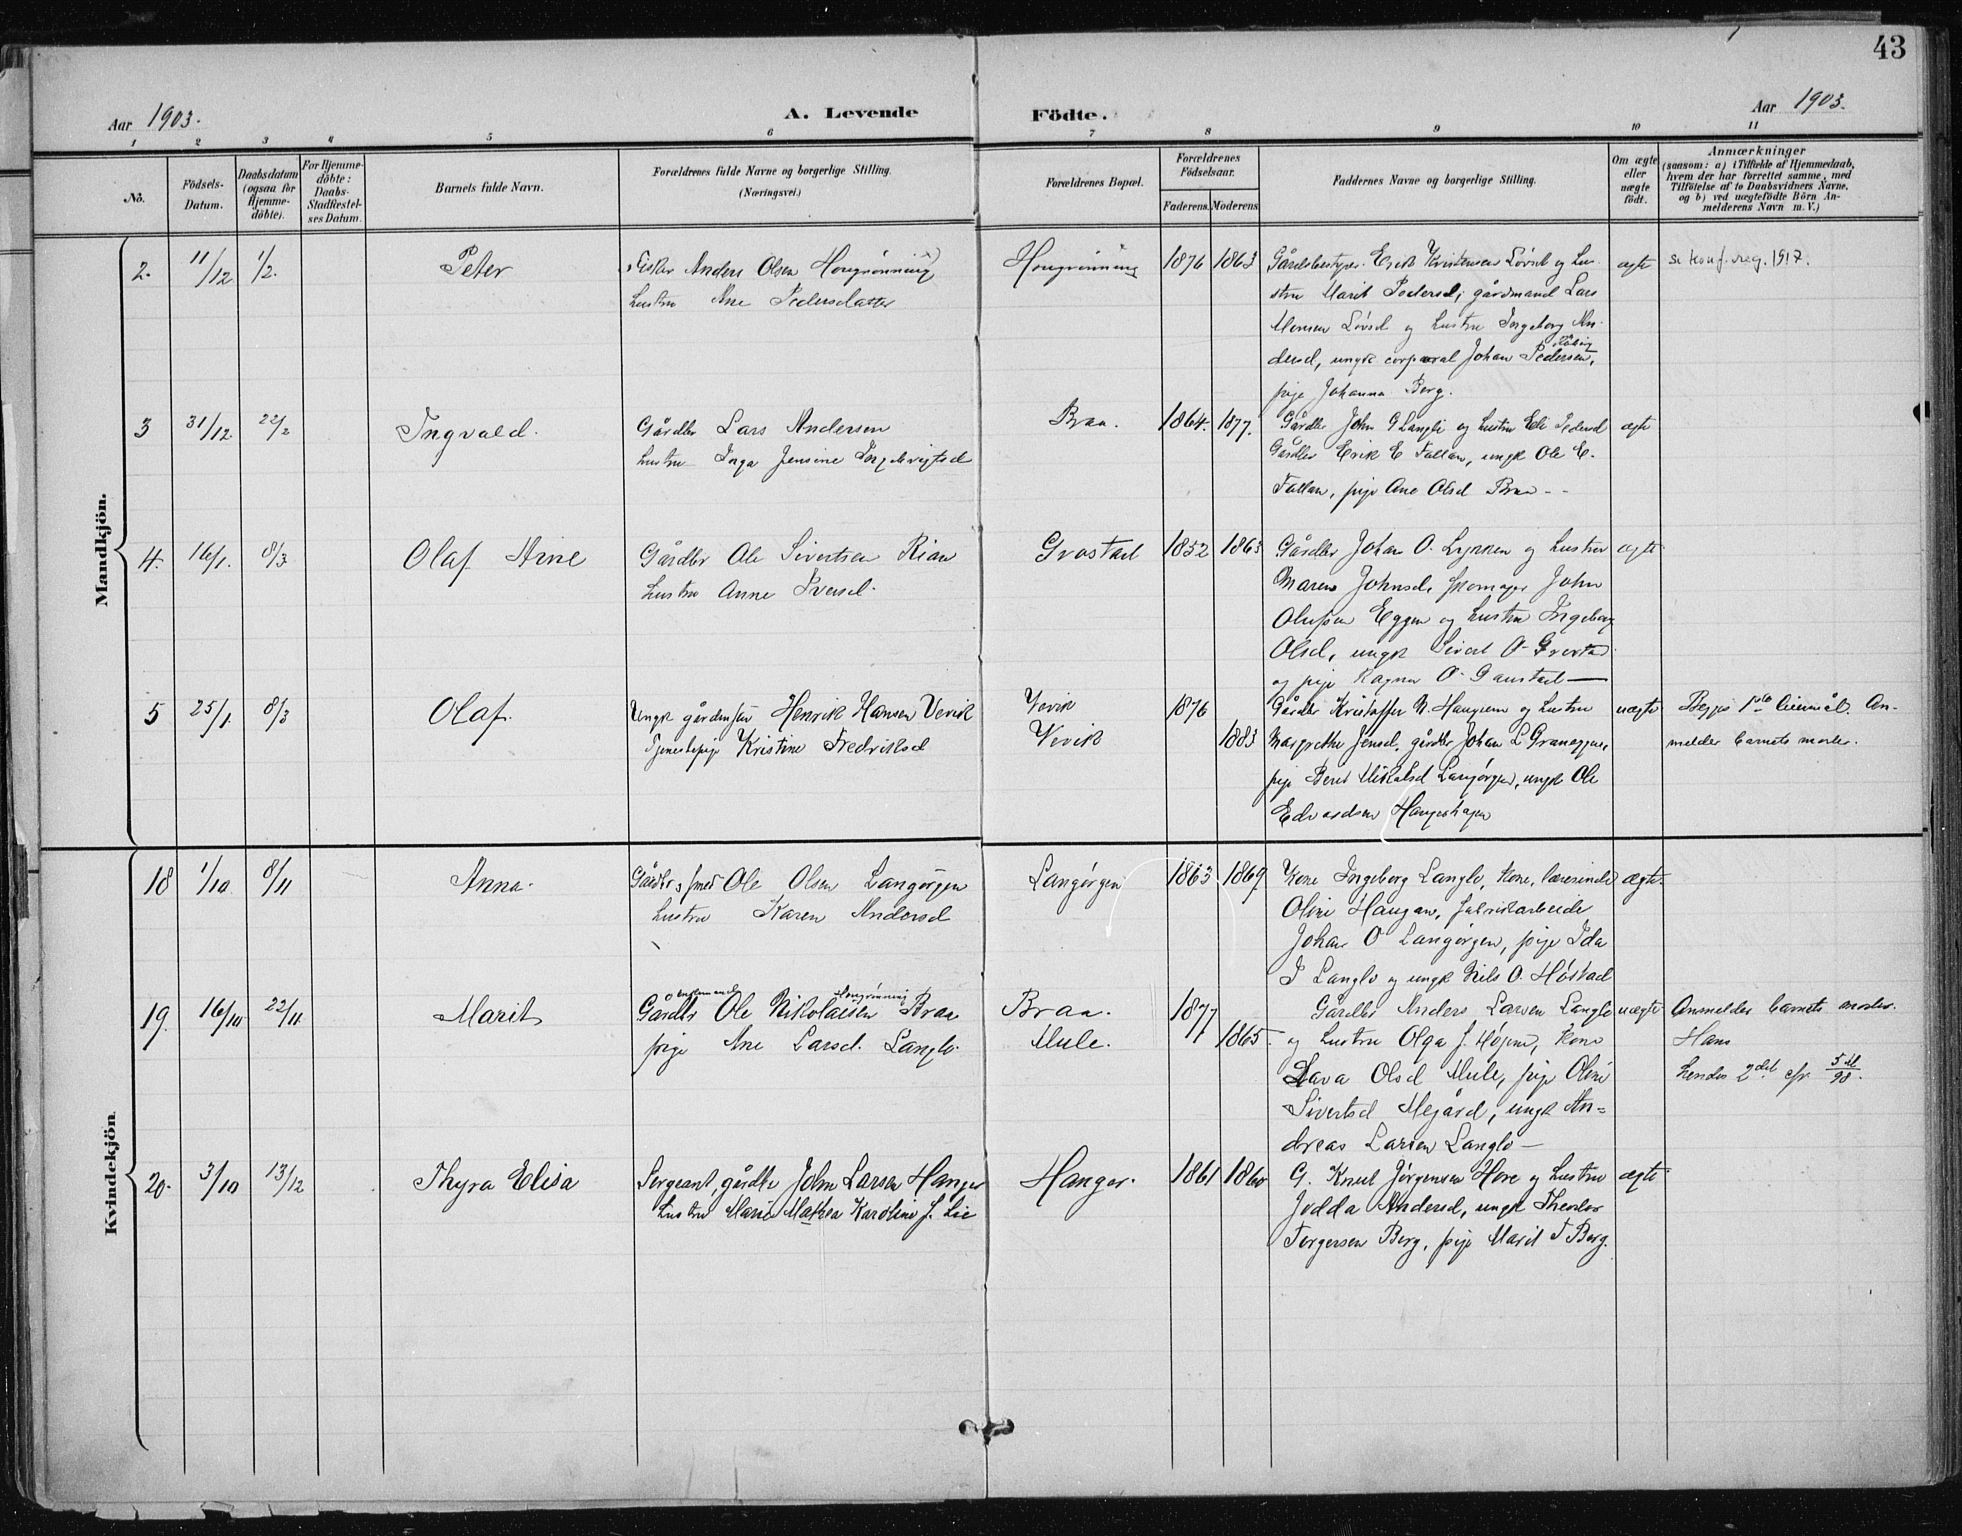 43
Aar 1903.
A. Levende
Födte.
Aar 1903.
1 2 3 4 5 6 7 8 9 10 11
No.
Födsels-
Datum.
Daabsdatum
(ogsaa for
Hjemme-
döbte).
For Hjemme-
döbte:
Daabs-
Stadfæstel-
ses Datum.
Barnets fulde Navn.
Forældrenes fulde Navne og borgerlige Stilling.
(Næringsvei.)
Forældrenes Bopæl.
Forældrenes
Födselsaar.
Faderens. Moderens.
Faddernes Navne og borgerlige Stilling.
Om ægte
eller
uægte
födt.
Anmærkninger
(saasom: a) i Tilfælde af Hjemmedaab,
hvem der har forrettet samme, med
Tilföielse af to Daabsvidners Navne,
og b) ved uægtefödte Börn An-
melderens Navn m. V.)
Mandkjön.
2. 11/12 1/2. Peter
Anders Olsen Hongrønning
hustru Ane Pedersdatter
Hongrønning
1876 1863
Gårdsbestyrer Erik Kristensen Løvset og hu-
stru Marit Pedersd; gårdmand Lars
Monsen Løvset og hustru Ingeborg An-
dersd, ungk corporal Johan Pedersen,
pige Johanna Berg.
ægte
se konf.reg. 1917.
3 31/12 22/2 Ingvald.
Gårdbr Lars Andersen
hustru Inga Jensine Ingebrigtsd
Braa.
1864. 1877.
Gårdbr John G Langli og hustru Eli Pedersd
Gårdbr Erik E Fallan, ungk Ole E.
Fallan, pige Ane Olsd Braa - -
ægte
4. 16/1. 8/3 Olaf Arne
Gårdbr Ole Sivertsen Rian
hustru Anne Iversd.
Grostad
1852 1863
Gårdbr Johan O. Lykken og hustru
Maren Johnsd, skomager John
Olufsen Eggen og hustru Ingeborg
Olsd, ungk Sivert O. Grostad
og pige Ragna O. Gaustad —
ægte
5 25/1 8/3 Olaf.
Ungk gårdmsøn Henrik Hansen Vevik
Tjenestepige Kristine Fredriksd
Vevik
Vevik
1876
1883
Gårdbr Kristoffer N. Haugum og hustru
Margrethe Jensd, gårdbr Johan L Graneggen,
pige Beret Mikalsd Langørgen, ungk Ole
Edvardsen Haugenhagen
uægte
Begges 1ste leiermål. An-
melder barnets moder.
Kvindekjön
18 1/10 8/11 Anna.
Gårdbr, smed Ole Olsen Langørgen
hustru Karen Andersd
Langørgen
1863 1869
Kone Ingeborg Langlo, kone, lærerinde
Oline Haugan, fabrikarbeider
Johan O Langørgen, pige Ida
J Langlo og ungk Nils O. Høstad
ægte.
19. 16/10 22/11 Marit
Hongrønning
Gårdbr Ole Nikolaisen Braa
pige Ane Larsd. Langlo.
Braa.
Mule.
1877
1865.
Gårdbr Anders Larsen Langlo
og hustru Olga J. Høiem, kone
Lava Olsd Mule, pige Oline
Sivertsd Megård, ungk An=
dreas Larsen Langlo —
uægte
Anmelder barnets moder.
Hans
hendes 2det
20. 3/10 13/12 Thyra Elisa
Sergeant, gårdbr John Larsen Hanger
hustru Marie Mathea Karoline J. Lie
Hanger.
1861 1860
G. Knut Jørgensen Hove og hustru
Jodda Andersd, ungk Theodor
Torgersen Berg, pige Marit T Berg.
ægte